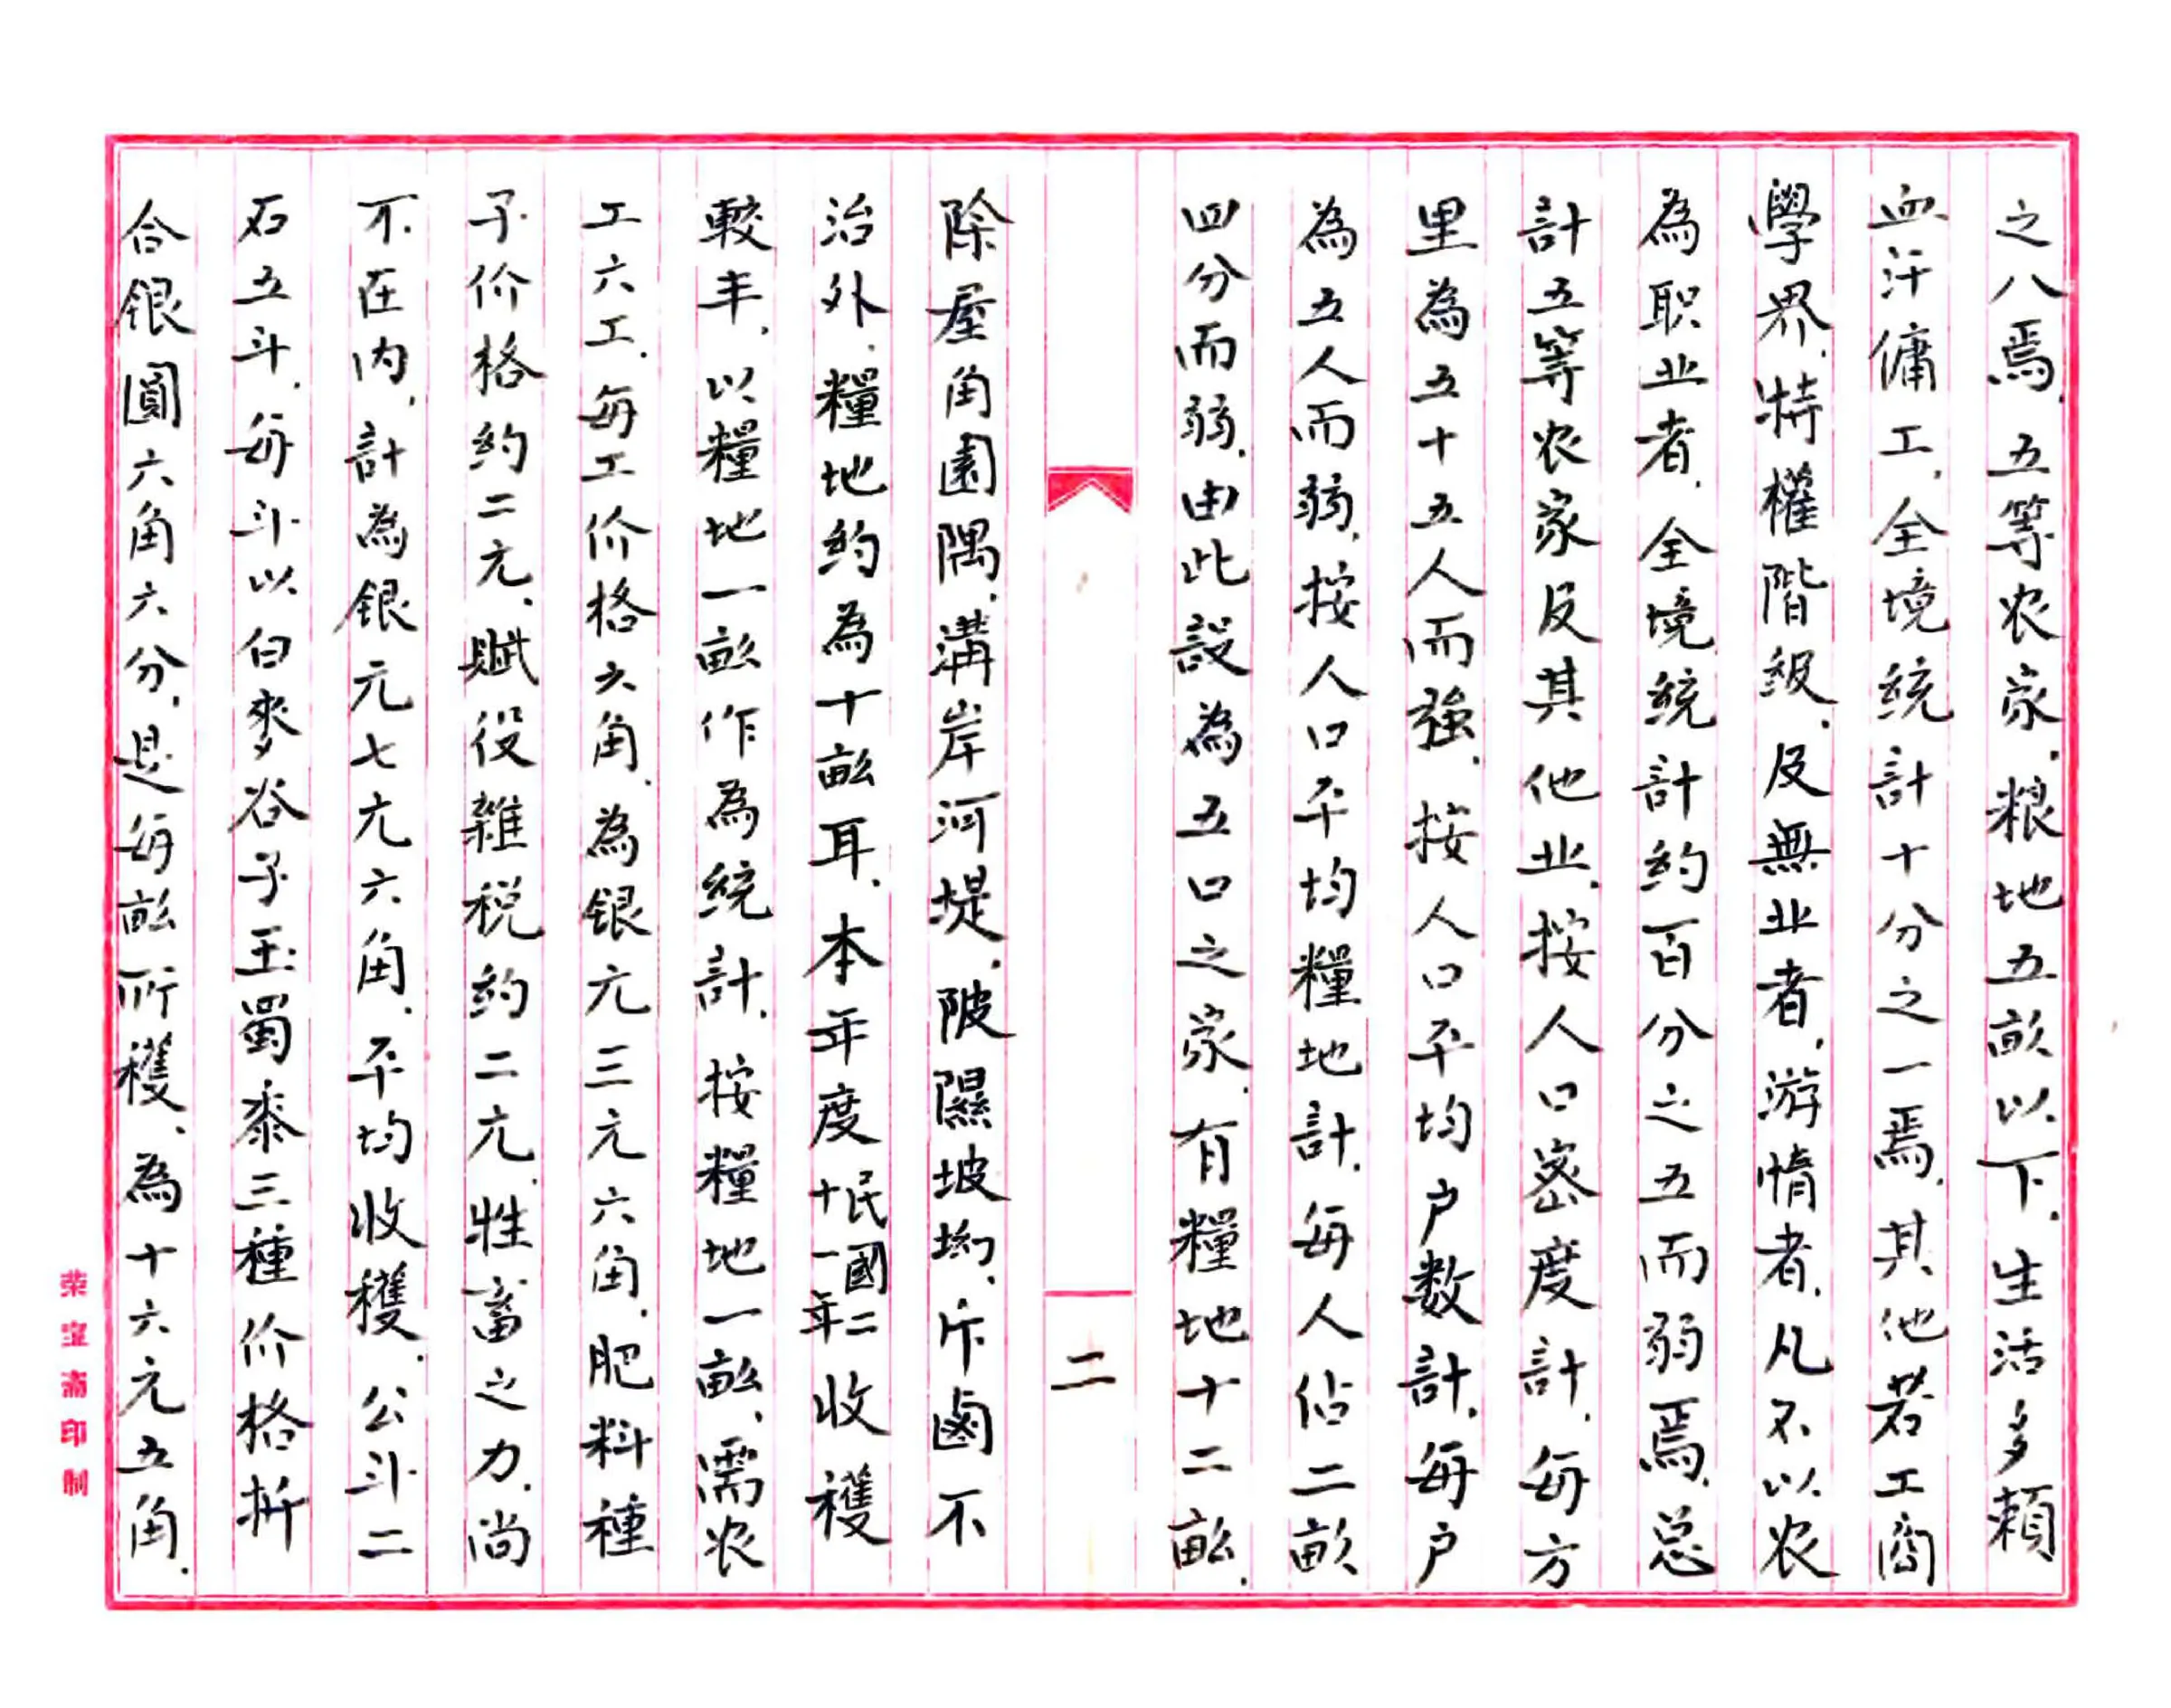 之八焉.五等农家.粮地五畝以下.生活多賴
血汗傭工.全境統計十分之一焉.其他若工商
學界.特權階級.及無业者.游惰者.凡不以农
為职业者.全境統計約百分之五而弱焉.总
計五等农家及其他业.按人口密度計.每方
里為五十五人而強.按人口平均户数計.每户
為五人而弱.按人口平均糧地計.每人佔二畝
四分而弱.由此設為五口之家.有糧地十二畝.
二
除屋角園隅.溝岸河堤.陂隰坡坳.斥鹵不
治外.糧地約為十畝耳.本年度民國二十一年收穫
較丰.以糧地一畝作為統計.按糧地一畝、需农
工六工.每工价格六角.為银元三元六角.肥料種
子价格約二元、賦役雜税約二元.牲畜之力.尚
不在内.計為银元七元六角.平均收穫.公斗二
石五斗.每斗以白麥谷子玉蜀黍三種价格折
合银圓六角六分.是每畝所穫、為十六元五角.
荣宝斋印制